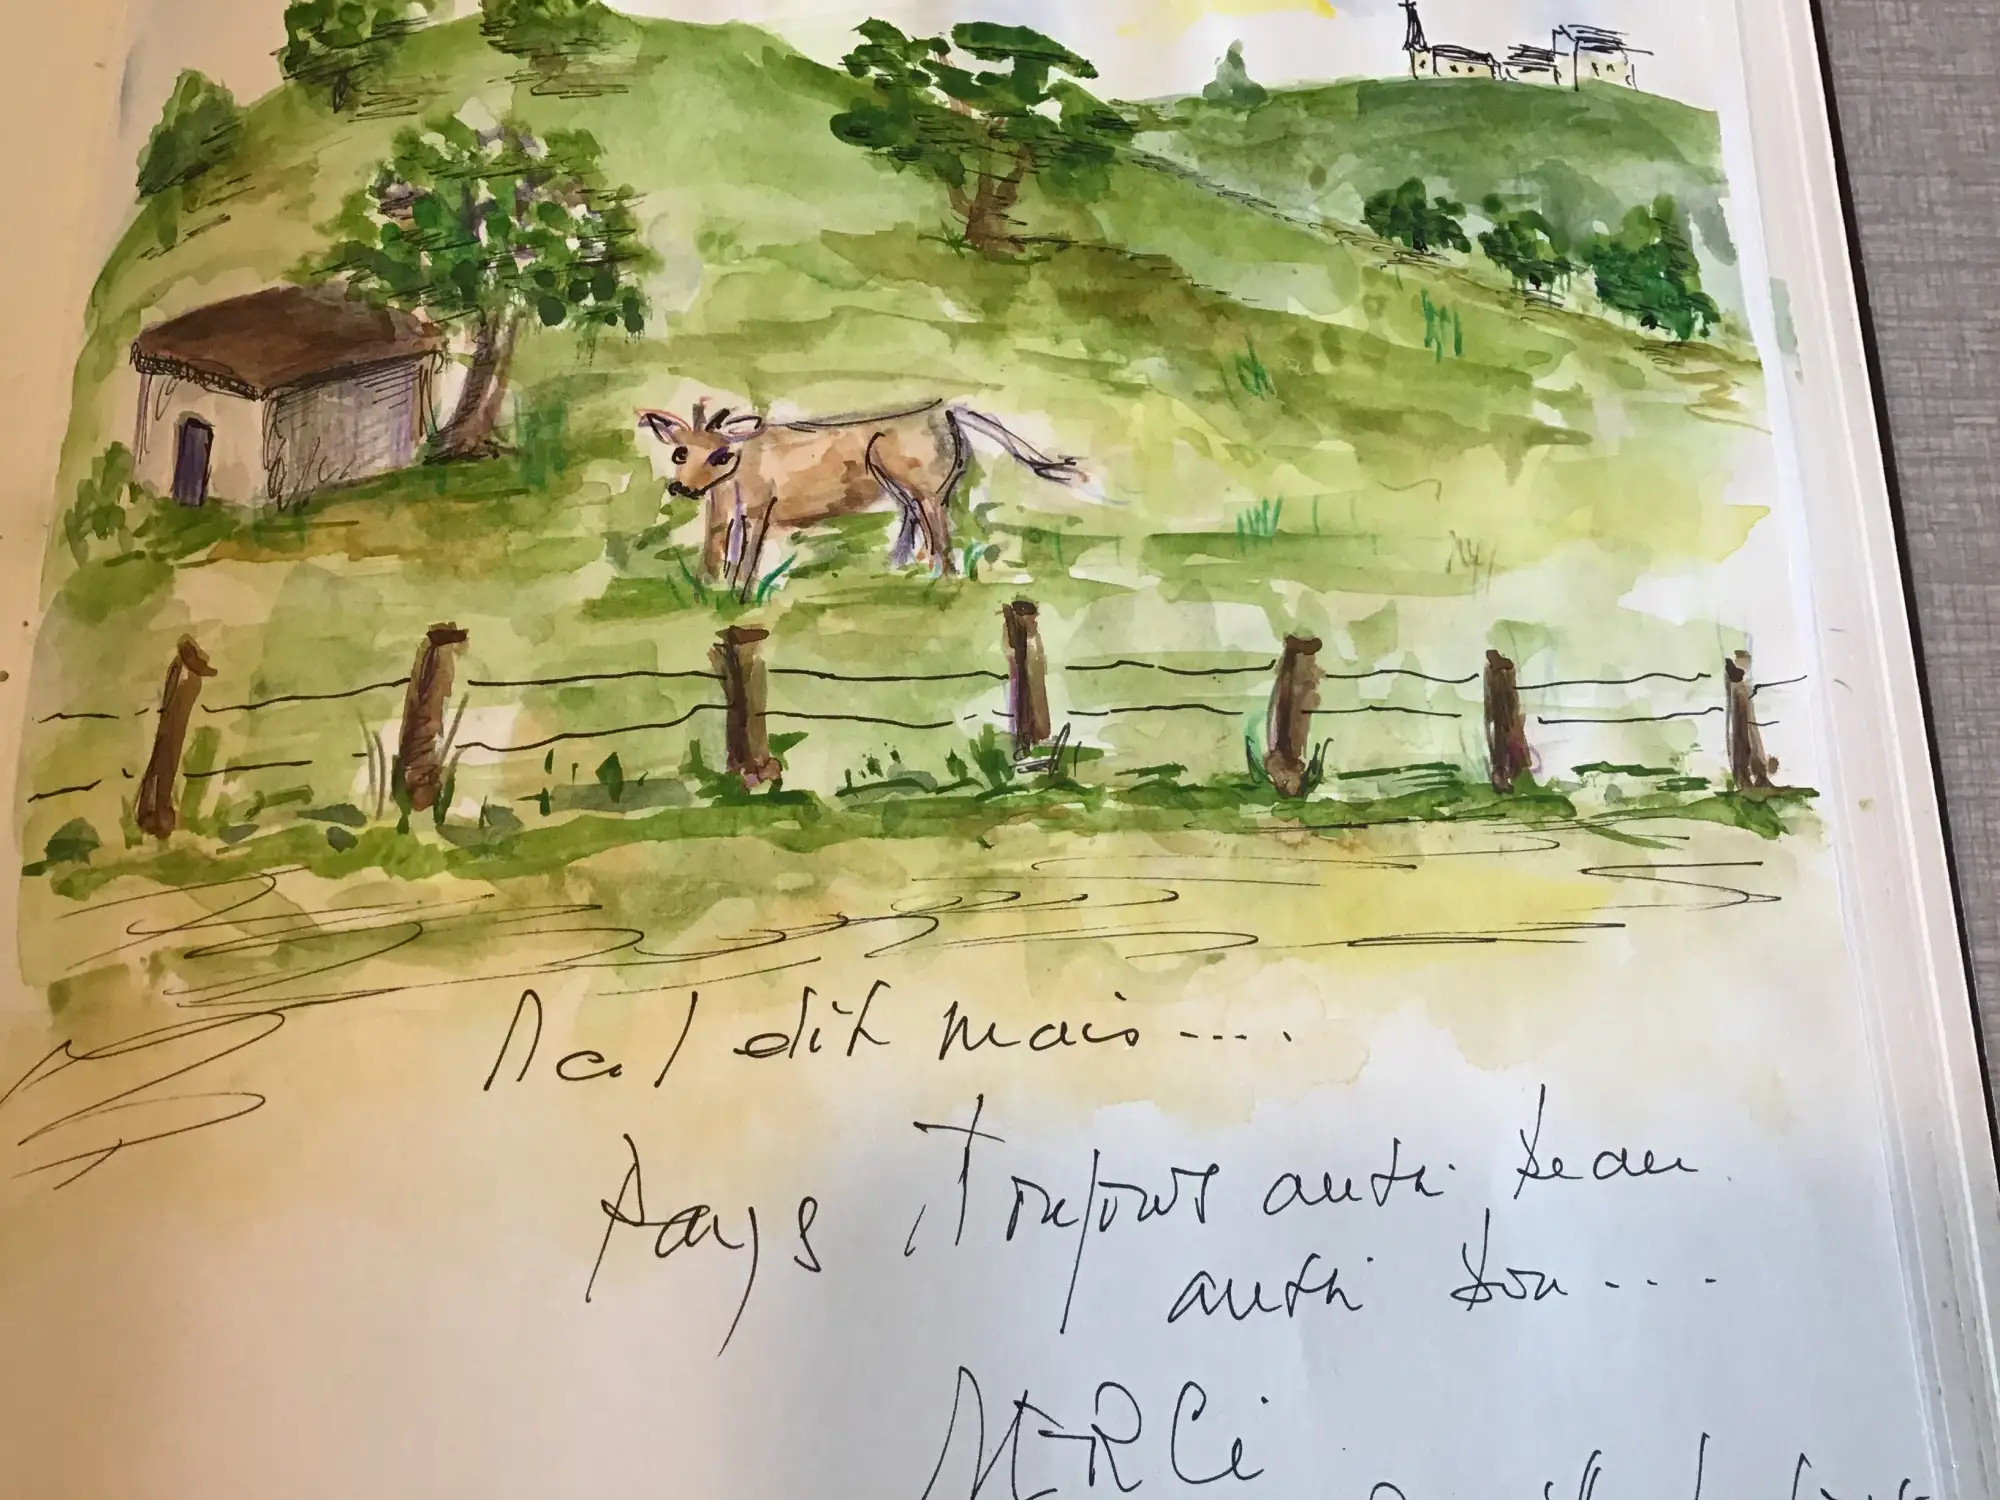 Mal dit mais....
Pays, Toujours aussi beau
aussi bon....
MERCi